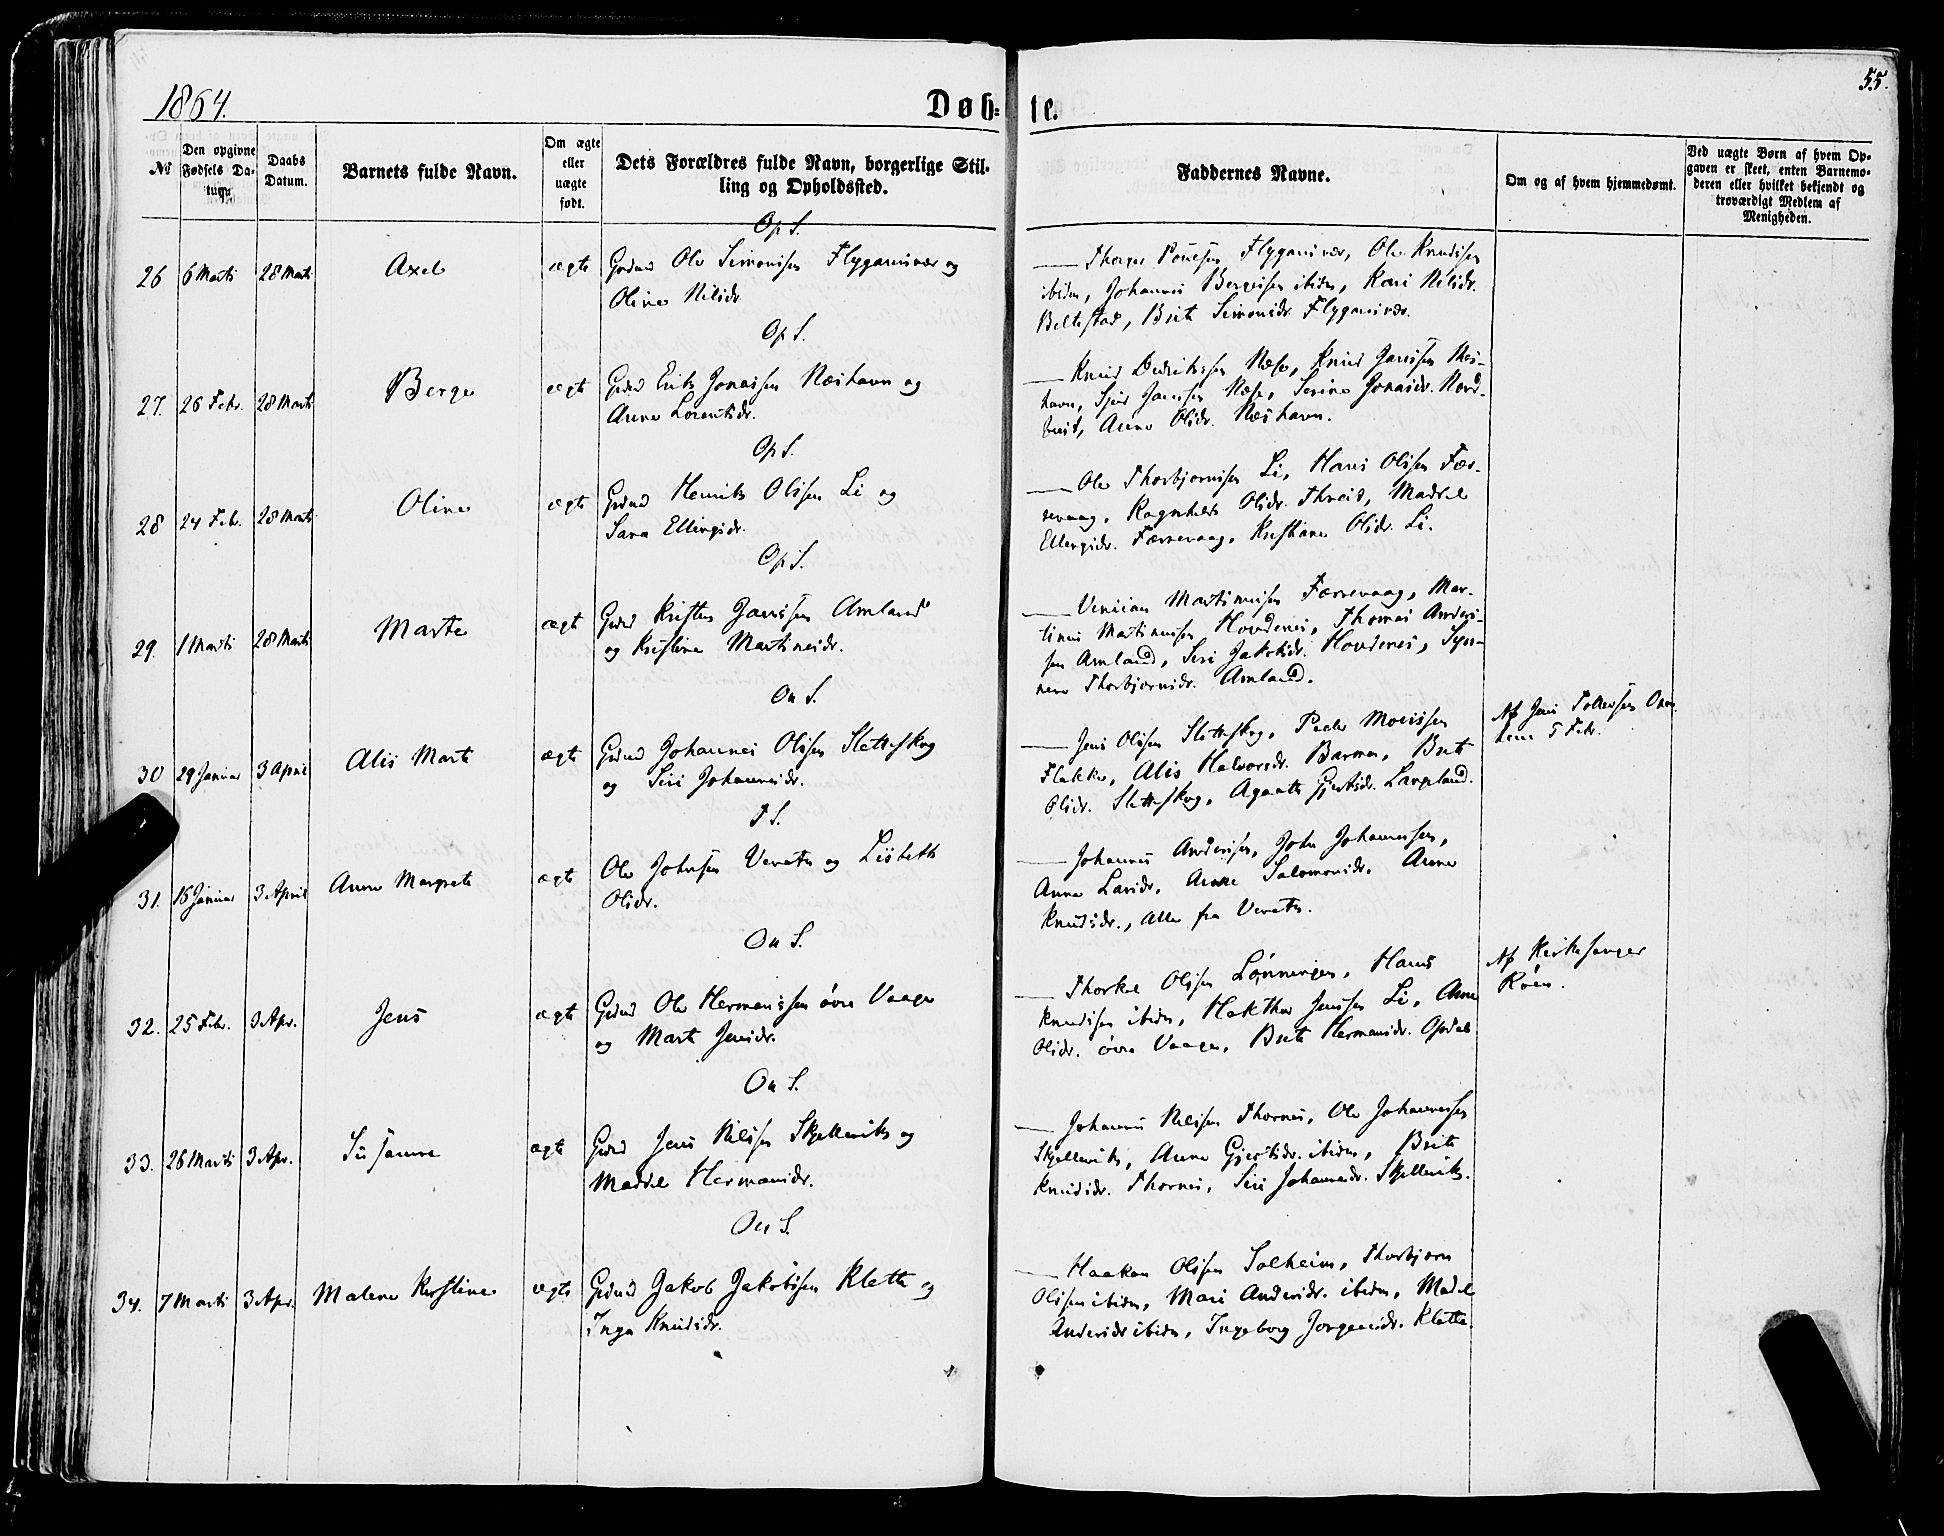 1864.
Døb-
te.
55.
№
Den opgivne Fødsels Datum.
Daabs Datum.
Barnets fulde Navn.
Om ægte eller uægte født.
Dets Forældres fulde Navn, borgerlige Stilling og Opholdssted.
Faddernes Navne.
Om og af hvem hjemmedømt.
Ved uægte Børn af hvem Opgaven er skeet, enten Barnemoderen eller hvilket bekjendt og troværdigt Medlem af Menigheden.
Op S.
26 6 Marts 28 Marts Axel ægte Grdmd Ole Simonsen Flygansvær og
Oline Nilsdr.
Ole Knudssen
ibidm, Johannes ibidm, Kari Nilsdr.
Beltestad, Brite Simonsdr. Flygansvær.
Op S.
27. 26 Febr. 28 Marts Berge ægt Grdmd Erik Jonassen Næshavn og
Anna Lorentsdr.
Knud Næse, Knud Janssen Næs-
havn, Janssen Næse, Serine Jonasdr. Nord-
Anna Olsdr. Næshavn.
Op S.
28 24 Feb. 28 Marts Oline ægte Grdmd Henrik Olsen Li og
Sara Ellingsdr.
Ole Thorbjørnsen Li, Hans Olsen Fær-
revaag, Ragnhild Olsdr. Madsel
Ellingsdr. Færrevaag, Kristiane Olsdr. Li.
Op S.
29. 1 Marts 28 Marts Marta ægt Grdmd Kristen Janssen Amland
og Kristine Martinesdr.
Martinussen Færrevaag, Mar-
tinus Martinussen Hovdenes, Thomas Anders-
sen Amland, Siri Jakobsdr. Hovdenes, Syn-
neva Thorbjørnsdr. Amland.
On S.
30 29 Januar 3 April Alis Marta ægte Grdmd Johannes Olsen Sletteskog
og Siri Johannesdr.
Jens Olsen Sletteskog, Peder Monssen
Flakke, Alis Halvorsdr. Barmen, Brite
Olsdr. Sletteskog, Agaata Gjertsdr. Langeland.
Af Jens Tollevsen
5 Febr.
T S.
31. 16 Januar 3 April Anna Margreta ægte Ole Johnsen Veraten og Lisbeth
Olsdr.
Johannes Andersen, John Johannessen,
Anna Larsdr. Anna Salomonsdr. Anna
Knudsdr., Alle fra Veraten.
On S.
32. 25 Feb. 3 Apr. Jens ægte Grdmd Ole Hermanssen øvre Vaage
og Marta Jensdr.
Thorkel Olsen Lønningen, Hans
Knudssen ibidm, Hakthor Jenssen Li, Anna
Olsdr. øvre Vaage, Brita Hermansdr. Opdal
Af Kirkesanger
Røen.
On S.
33. 26 Marts 3 Apr. Susanne ægte Grdmd Jens Nilssen Skjellevik og
Madsel Hermansdr.
Johannes Nilssen Thornes, Ole Johannessen
Skjellevik, Anna Gjertsdr. ibidm, Brita
Knudsdr. Thornes, Siri Johannesdr. Skjellevik.
On S.
34. 7 Marts 3 Apr. Malena Kirstine ægte Grdmd Jakob Jakobssen Klette og
Inga Knudsdr.
Haakon Olssen Solheim, Thorbjørn
Olssen ibidm, Mari Andersdr. ibidm, Madel
Andersdr ibidm, Ingeborg Jørgensdr. Klette